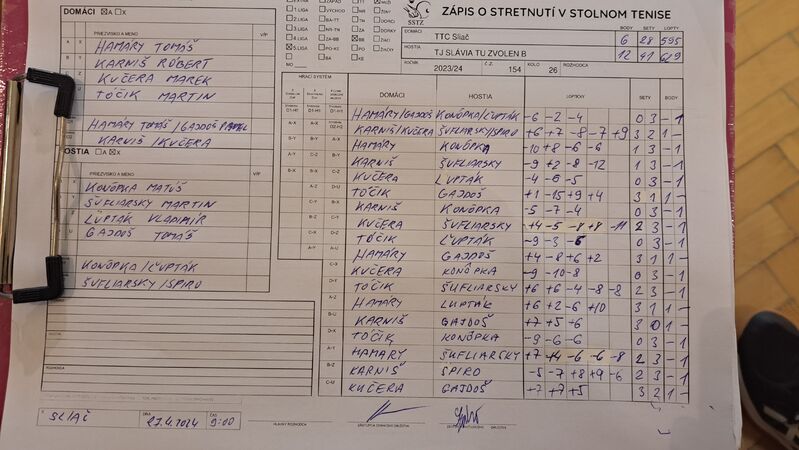 ZÁPIS O STRETNUTÍ V STOLNOM TENISE
SSTZ
DOMÁCI A X
DOMÁCI TTC Sliač
HOSTIA TJ SLÁVIA TU ZVOLEN B
BODY SETY LOPTY
6 28 595
12 41 629
ROČNÍK 2023/24 Č.Z. 154 KOLO 26 ROZHODCA
PRIEZVISKO A MENO V/P
HAMARY TOMÁŠ
KARNIŠ RÓBERT
KUČERA MAREK
TÓČIK MARTIN
HAMARY TOMÁŠ/GAJDOŠ PAVEL
KARNIŠ/KUČERA
OSTIA A X
PRIEZVISKO A MENO V/P
KONÔPKA MATÚŠ
ŠUFLIARSKY MARTIN
ĽUPTÁK VLADIMÍR
GAJDOŠ TOMÁŠ
KONÔPKA/ĽUPTÁK
ŠUFLIARSKY/SPIRO
HRACÍ SYSTÉM
DOMÁCI HOSTIA LOPTIČKY SETY BODY
HAMARY/GAJDOŠ KONÔPKA/ĽUPTÁK -6 -2 -4 0 3 - 1
KARNIŠ/KUČERA ŠUFLIARSKY/SPIRO +6 +7 -8 -7 +9 3 2 1 -
HAMARY KONÔPKA -10 +8 -6 -6 1 3 - 1
KARNIŠ ŠUFLIARSKY -9 +2 -8 -12 1 3 - 1
KUČERA LUPTÁK -4 -6 -5 0 3 - 1
TÓČIK GAJDOŠ +1 -15 +9 +4 3 1 1 -
KARNIŠ KONÔPKA -5 -7 -4 0 3 - 1
KUČERA ŠUFLIARSKY +4 -5 -8 +8 -11 2 3 - 1
TÓČIK ĽUPTÁK -9 -3 -6 0 3 - 1
HAMARY GAJDOŠ +4 -8 +6 +2 3 1 1 -
KUČERA KONÔPKA -9 -10 -8 0 3 - 1
TÓČIK ŠUFLIARSKY +6 +6 -4 -8 -8 2 3 - 1
HAMARY LUPTÁK +6 +2 -6 +10 3 1 1 -
KARNIŠ GAJDOŠ +7 +5 +6 3 0 1 -
TÓČIK KONÔPKA -9 -6 -6 0 3 - 1
HAMARY ŠUFLIARSKY +7 +4 -6 -6 -8 2 3 - 1
KARNIŠ SPIRO -5 -7 +8 +9 -6 2 3 - 1
KUČERA GAJDOŠ +7 +7 +5 3 2 1 -
ROZHODCA
SLIAČ DŇA 27.4.2024 ČAS 9:00
HLAVNÝ ROZHODCA